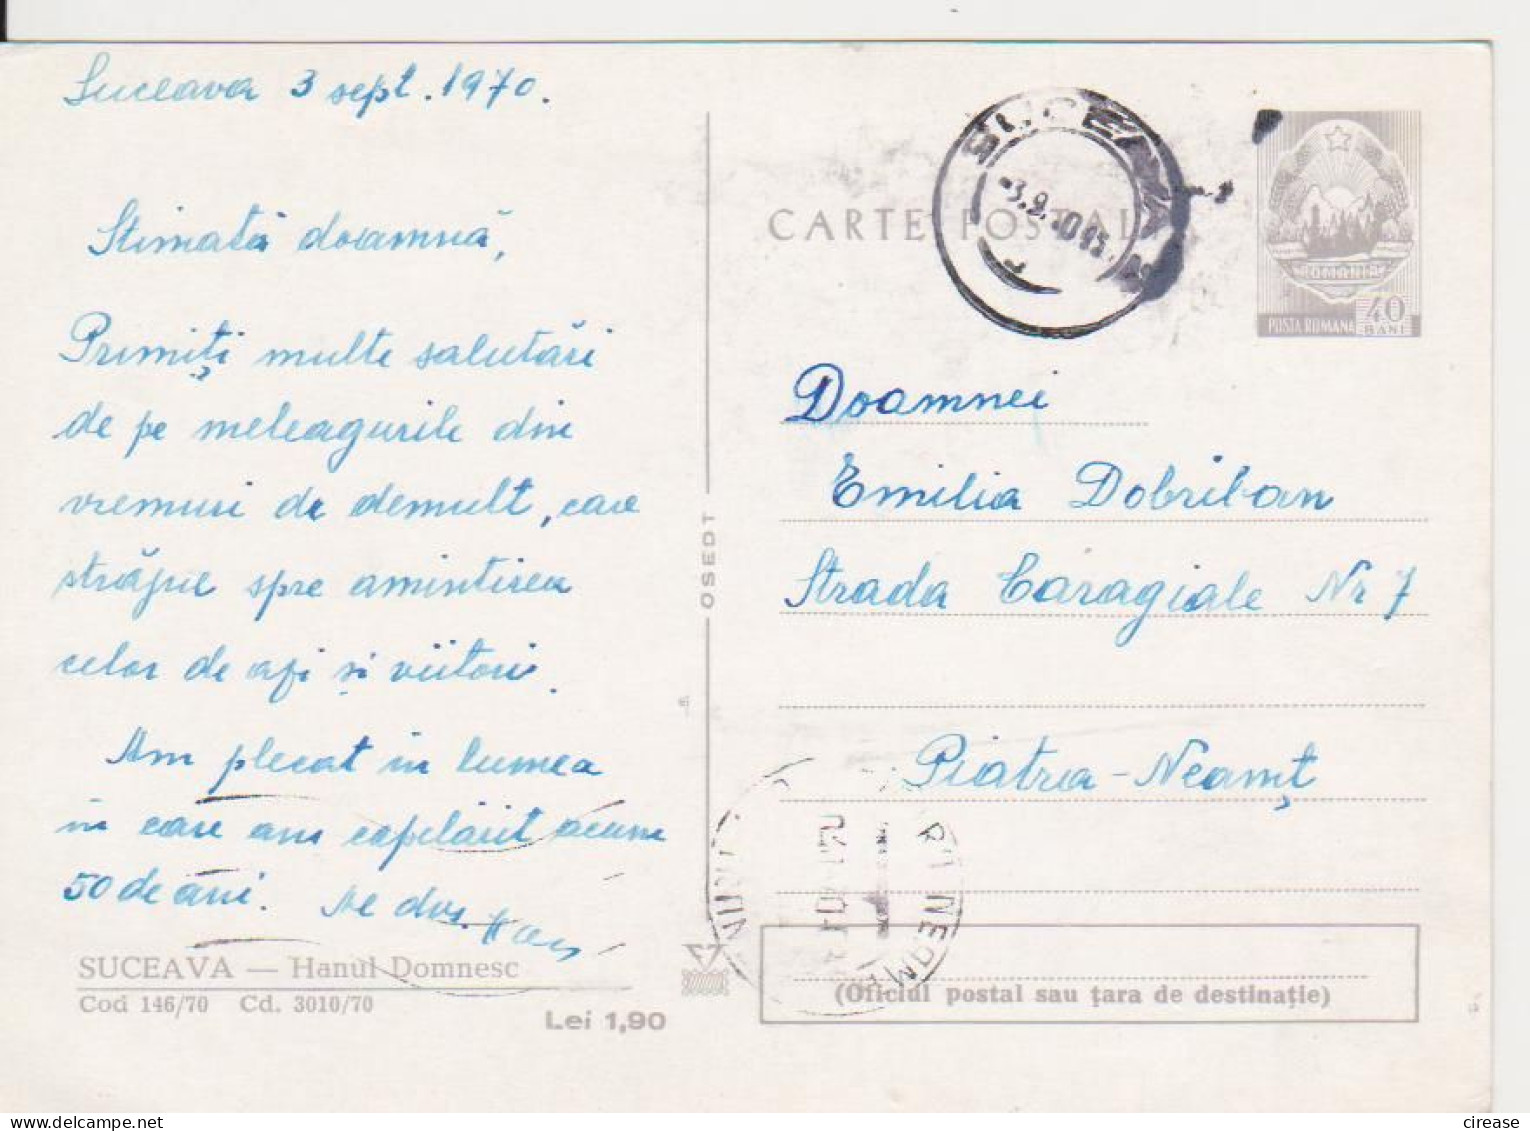 Suceava 3 sept. 1970.
Stimată doamnă,
Primiți multe salutări
de pe meleagurile din
vremuri de demult, care
străjue spre amintirea
celor de azi și viitori.
Am plecat în lumea
în care am copilărit acum
50 de ani.
SUCEAVA — Hanul Domnesc
Cod 146/70 Cd. 3010/70
Lei 1,90
OSEDT
CARTE POSTALĂ
SUCEAVA
ROMANIA
POSTA ROMANA
40
BANI
Doamnei
Emilia Dobrilan
Strada Caragiale Nr 7
Piatra-Neamț
(Oficiul postal sau țara de destinație)
cirease